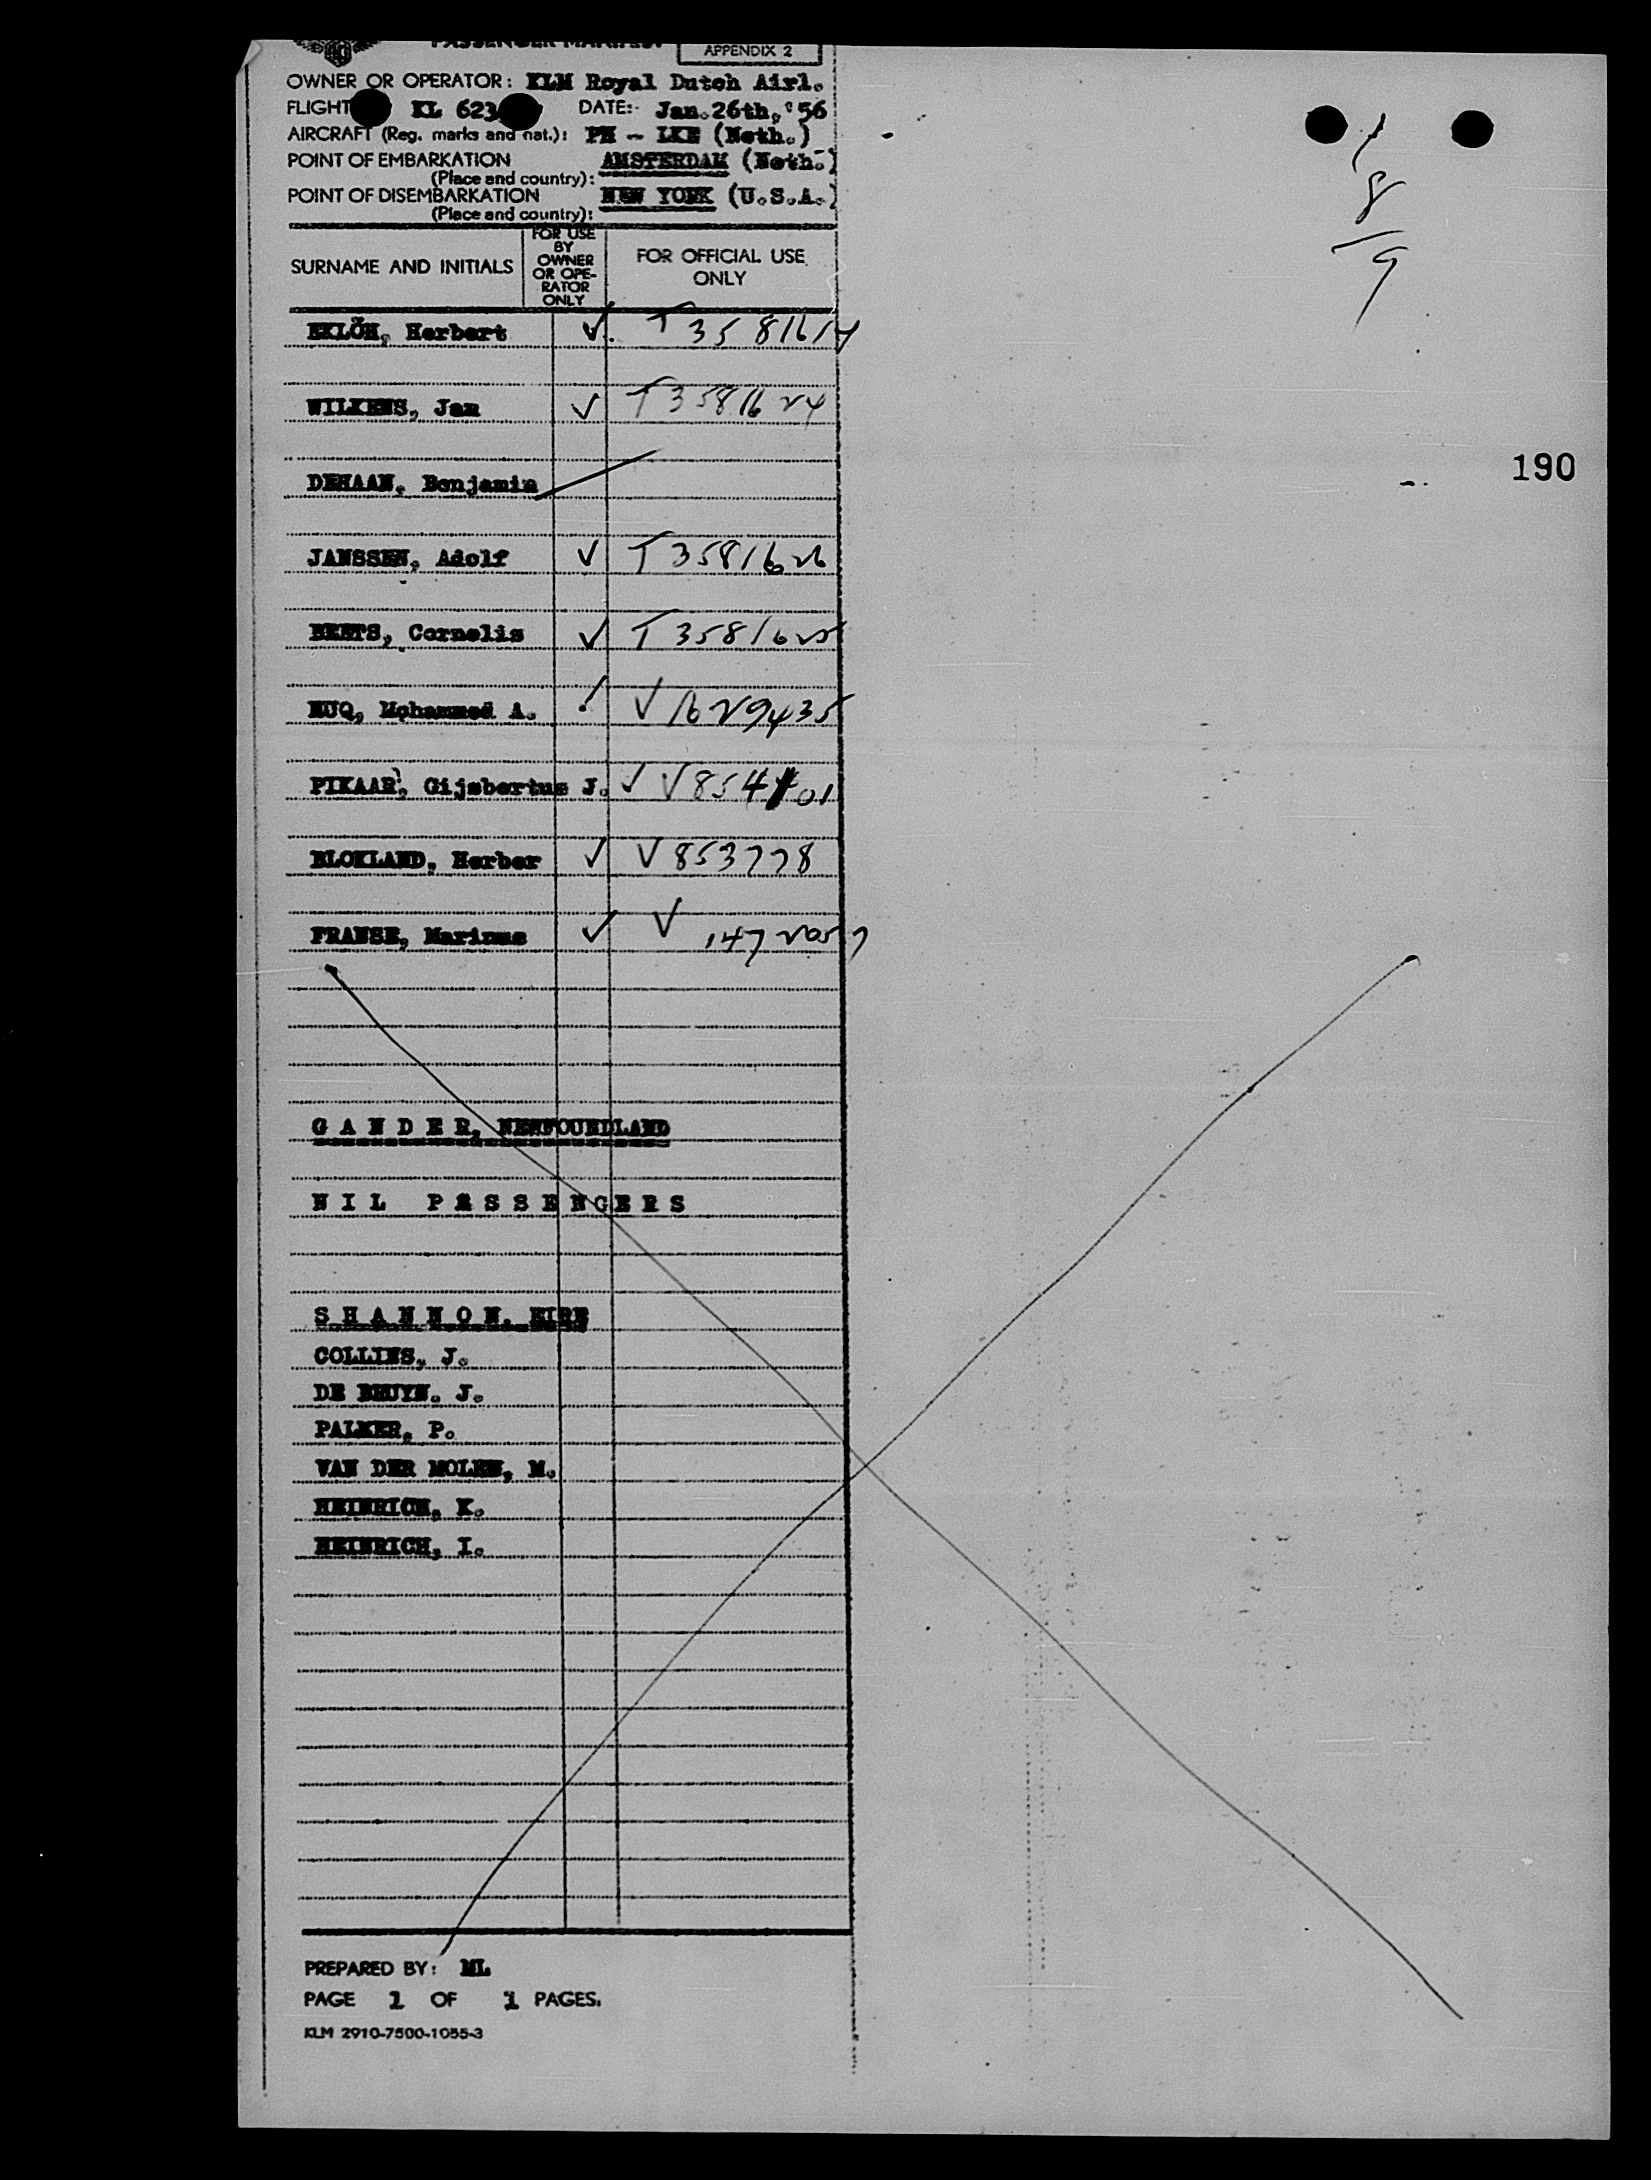 PASSENGER MANIFEST
APPENDIX 2
OWNER OR OPERATOR: KLM Royal Dutch Airl.
FLIGHT KL 623 DATE: Jan.26th,'56
AIRCRAFT (Reg. marks and nat.): PH - LKE (Neth.)
POINT OF EMBARKATION AMSTERDAM (Neth.)
(Place and country):
POINT OF DISEMBARKATION NEW YORK (U.S.A.)
(Place and country):
SURNAME AND INITIALS
FOR USE
BY
OWNER
OR OPE-
RATOR
ONLY
FOR OFFICIAL USE
ONLY
1
8
9
190
EKLÖH, Herbert ✓ T 3581614
WILKENS, Jan ✓ T3581624
DEHAAN, Benjamin
JANSSEN, Adolf ✓ T 3581626
BEETS, Cornelis ✓ T 3581625
HUQ, Mohammed A. V 1629435
PIKAAR, Gijsbertus J. ✓ V 854 01
BLOKLAND, Herber ✓ V 853778
FRANSE, Marinus ✓ V 1472057
G A N D E R, NEWFOUNDLAND
N I L P A S S E N G E R S
S H A N N O N, EIRE
COLLINS, J.
DE BRUYN. J.
PALMER, P.
VAN DER MOLEN, M.
HEINRICH, K.
HEINRICH, I.
PREPARED BY: ML
PAGE 1 OF 1 PAGES.
KLM 2910-7500-1055-3